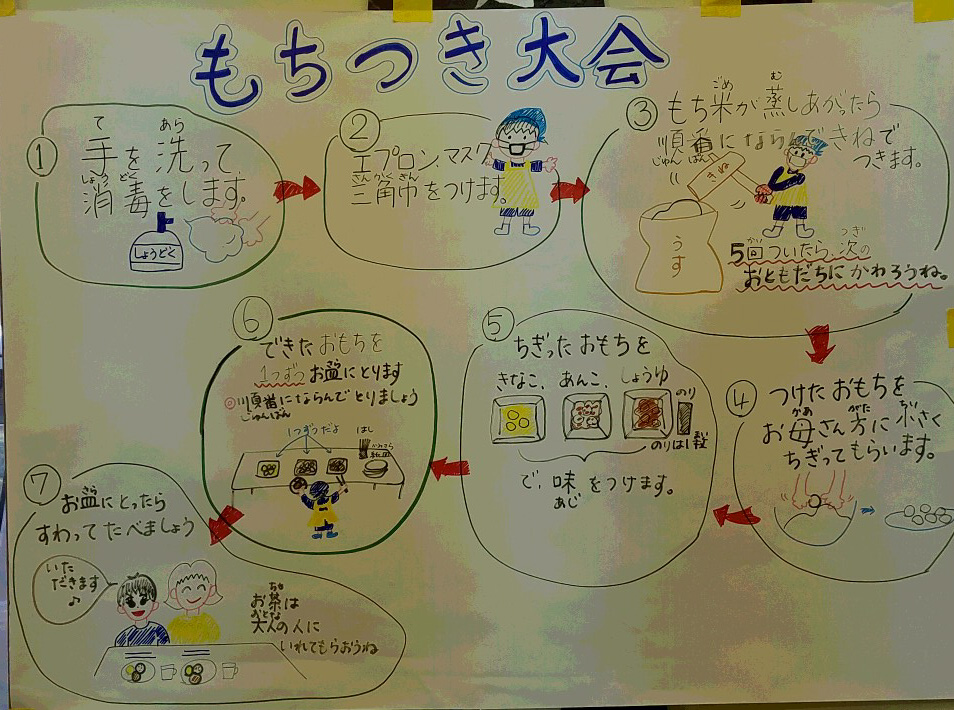 もちつき大会
①
て あら
手を洗って
しょう どく
消毒をします。
しょうどく
②
エプロン、マスク
さん かく きん
三角巾をつけます。
③
ごめ む
もち米が蒸しあがったら
順番にならんできねで
じゅん ばん
つきます。
きね
うす
かい つぎ
5回ついたら次の
おともだちにかわろうね。
④
つけたおもちを
かあ がた ちい
お母さん方に小さく
ちぎってもらいます。
⑤
ちぎったおもちを
きなこ、あんこ、しょうゆ
のり
のりは1枚
で、味をつけます。
あじ
⑥
できたおもちを
1つずつお皿にとります
◎順番にならんでとりましょう
じゅんばん
1つずつだよ
はし
⑦
お皿にとったら
すわってたべましょう
いた
だきます
♪
ちゃ
お茶は
おとな
大人の人に
いれてもらおうね